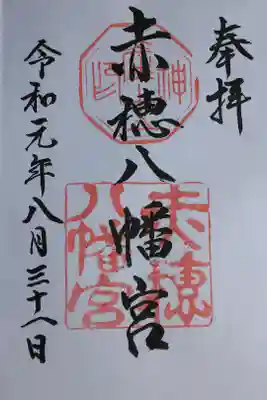 奉拝
赤穂八幡宮
令和元年八月三十一日
赤穂
八幡宮